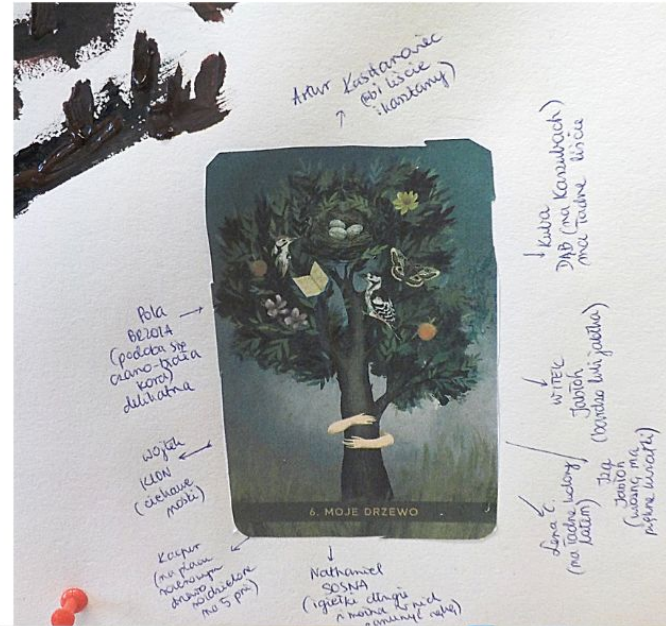 Artur Kasztanowiec
(zbi liście
i kasztany)
Kuba
DĄB (na Kaszubach)
ma ładne liście
Pola
BRZOZA
(podoba się
czarno-biała
kora)
delikatna
WITEK
Jabłoń
(bardzo lubi jabłka)
Wojtek
KLON
(ciekawe
noski)
Iga
Jabłoń
(wiosną ma
piękne kwiatki)
Lena
(ma ładne kolory
latem)
6. MOJE DRZEWO
Kacper
(na placu
drzewo
rozdzielone
na 5 pni)
Nathaniel
SOSNA
(igiełki długie
i można w nich
zanurzyć rękę)